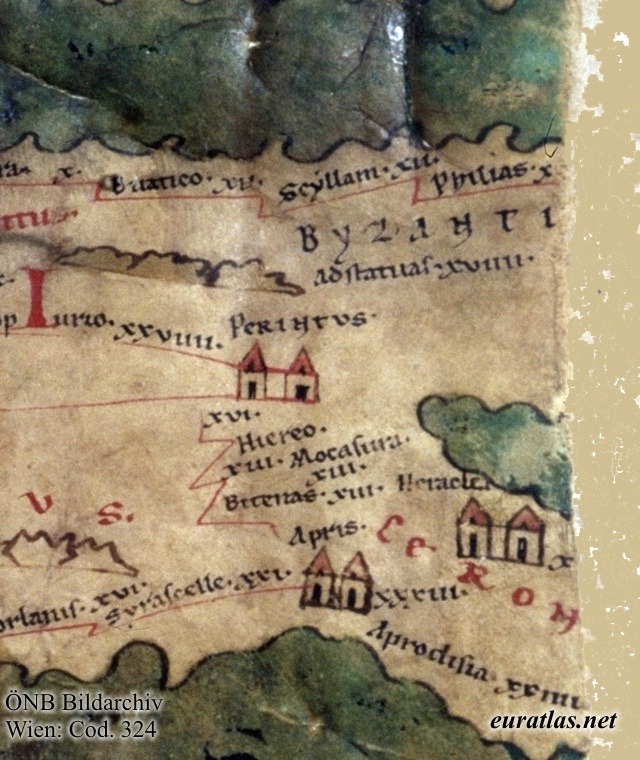 ra. x. Buatico. xii. Scyllam. xii. Philias. x
ttus.
BYZANTI
Adstatuas. xviiii.
Iurio. xxviiii. Perintus.
xvi.
Hiereo.
xiii. Mocasura.
xiii.
Bitenas. xiii. Heracle
Apris.
CERON
US.
orlanis. xvi. Syrascelle. xxi. xxxiii.
Aprodisia. xxiiii
ÖNB Bildarchiv
Wien: Cod. 324
euratlas.net